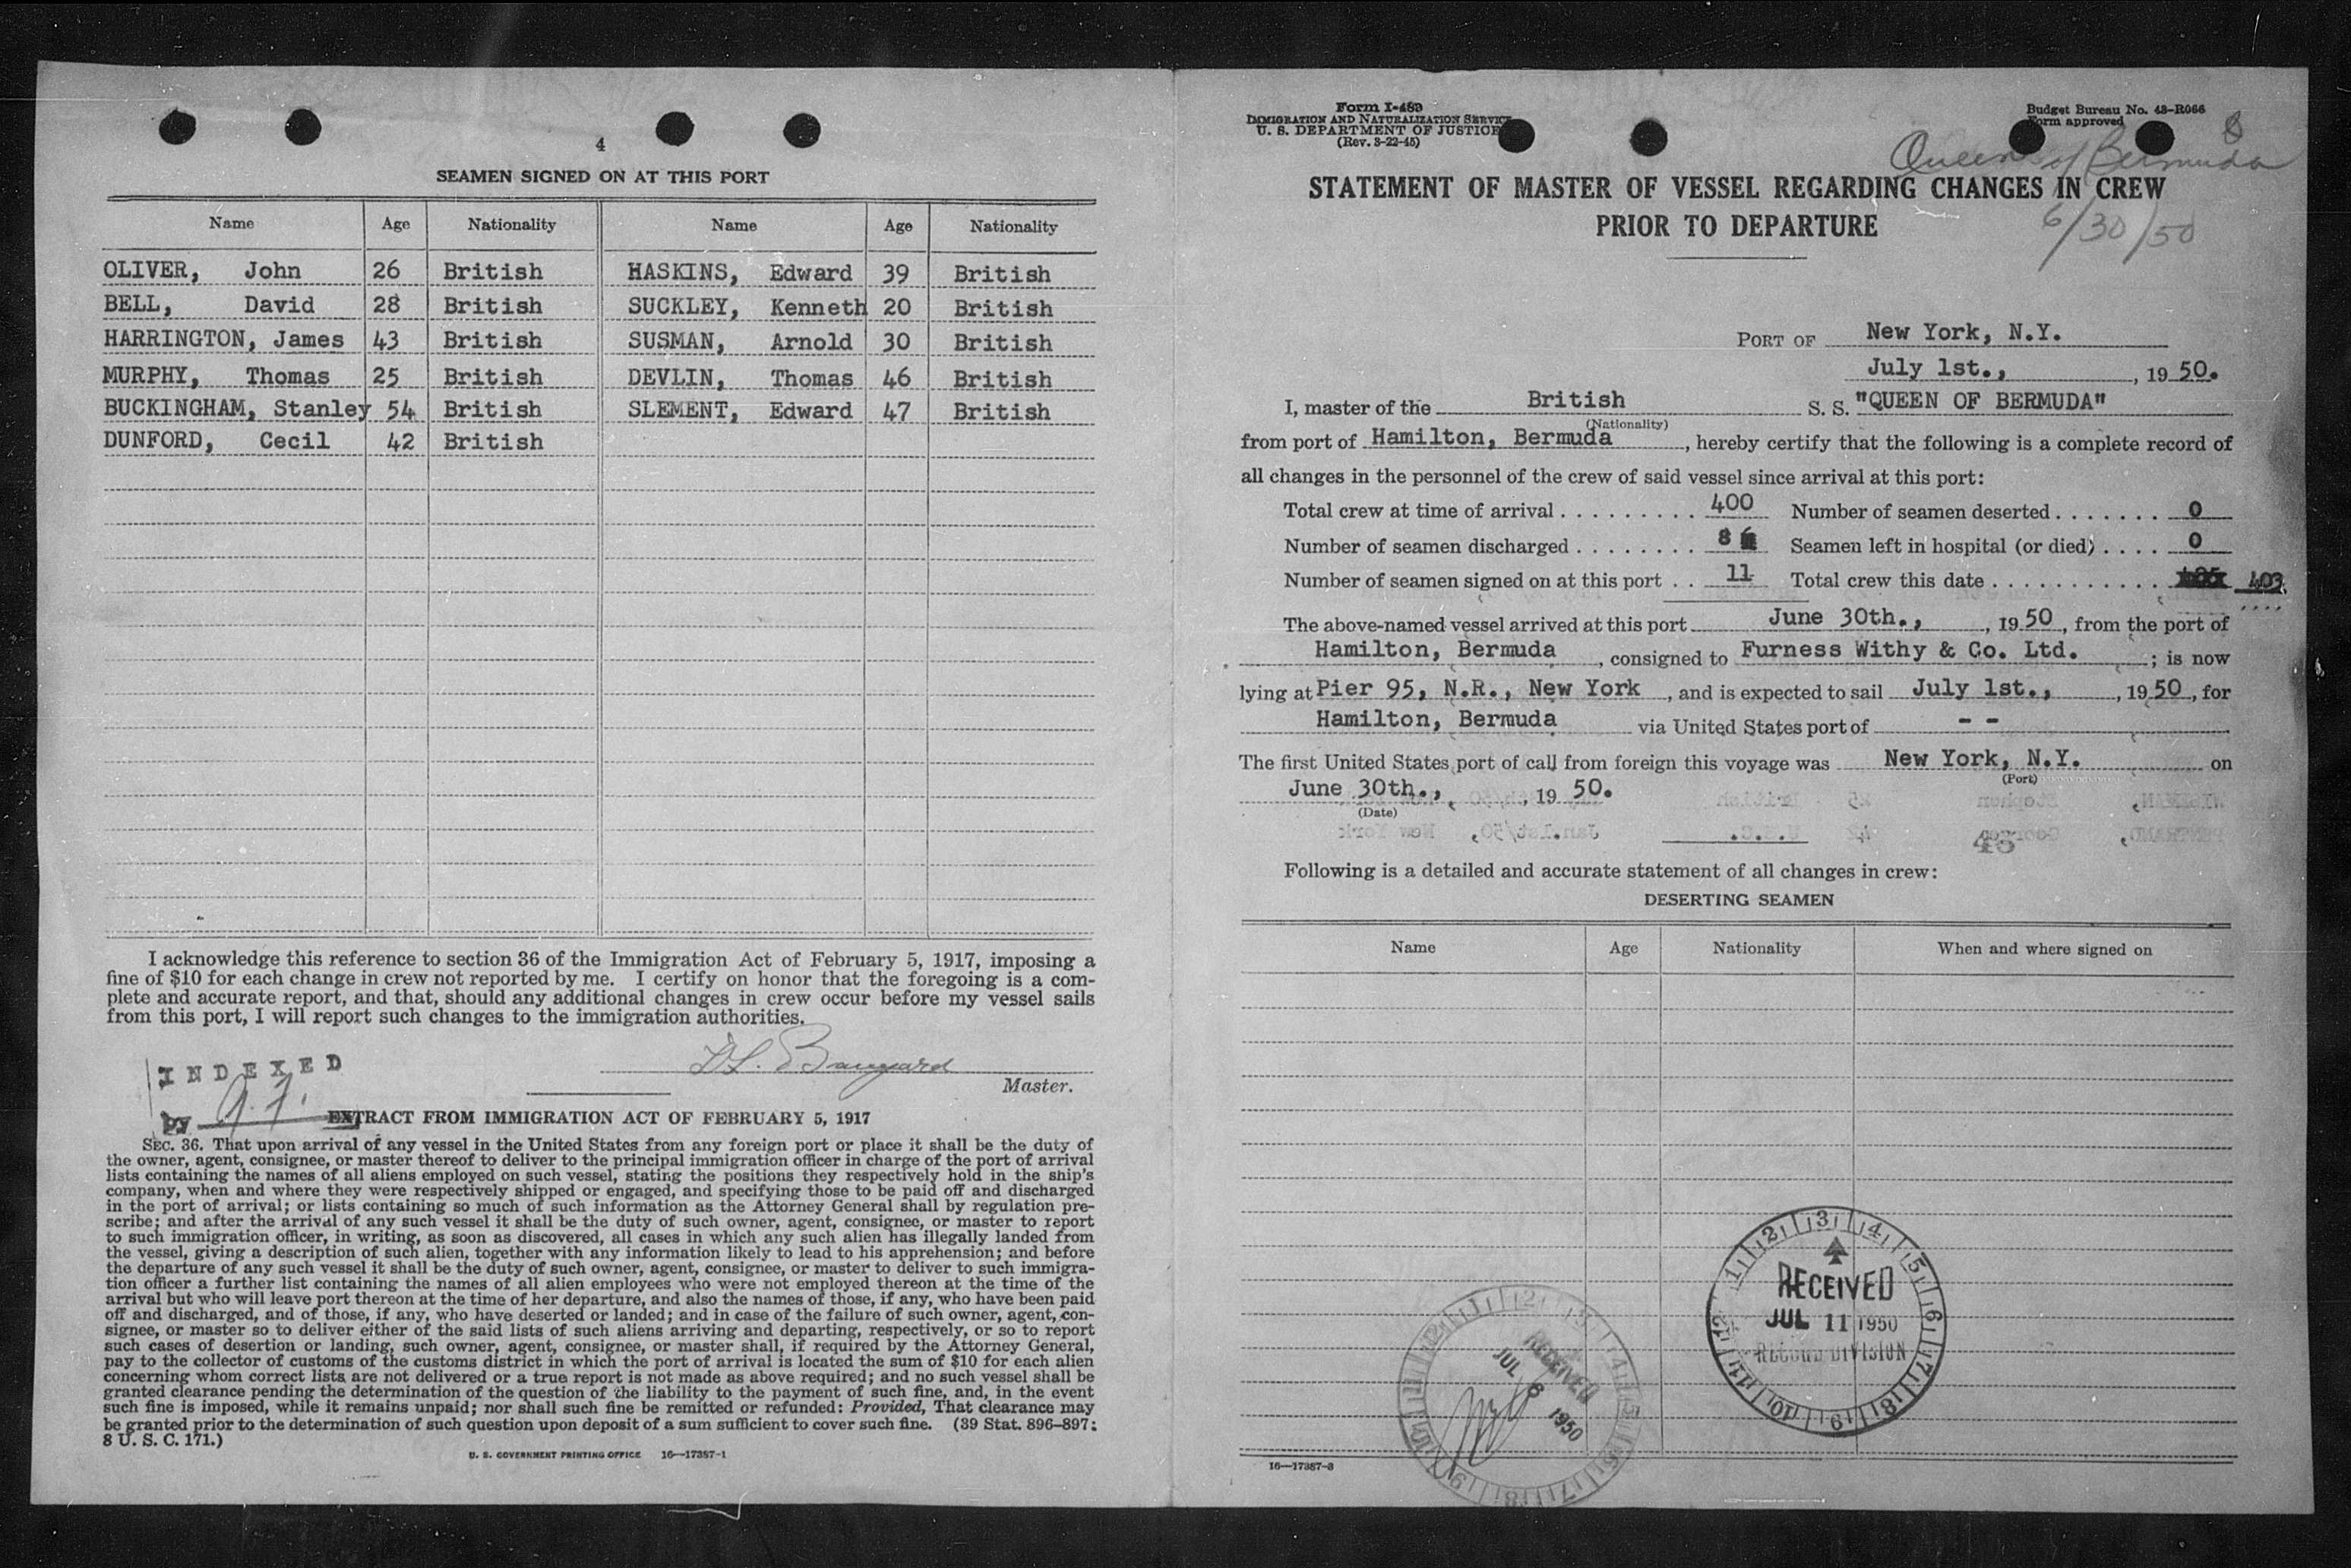 4
SEAMEN SIGNED ON AT THIS PORT
Name Age Nationality Name Age Nationality
OLIVER, John 26 British HASKINS, Edward 39 British
BELL, David 28 British SUCKLEY, Kenneth 20 British
HARRINGTON, James 43 British SUSMAN, Arnold 30 British
MURPHY, Thomas 25 British DEVLIN, Thomas 46 British
BUCKINGHAM, Stanley 54 British SLEMENT, Edward 47 British
DUNFORD, Cecil 42 British
I acknowledge this reference to section 36 of the Immigration Act of February 5, 1917, imposing a
fine of $10 for each change in crew not reported by me. I certify on honor that the foregoing is a com-
plete and accurate report, and that, should any additional changes in crew occur before my vessel sails
from this port, I will report such changes to the immigration authorities.
Master.
INDEXED
by
EXTRACT FROM IMMIGRATION ACT OF FEBRUARY 5, 1917
SEC. 36. That upon arrival of any vessel in the United States from any foreign port or place it shall be the duty of
the owner, agent, consignee, or master thereof to deliver to the principal immigration officer in charge of the port of arrival
lists containing the names of all aliens employed on such vessel, stating the positions they respectively hold in the ship's
company, when and where they were respectively shipped or engaged, and specifying those to be paid off and discharged
in the port of arrival; or lists containing so much of such information as the Attorney General shall by regulation pre-
scribe; and after the arrival of any such vessel it shall be the duty of such owner, agent, consignee, or master to report
to such immigration officer, in writing, as soon as discovered, all cases in which any such alien has illegally landed from
the vessel, giving a description of such alien, together with any information likely to lead to his apprehension; and before
the departure of any such vessel it shall be the duty of such owner, agent, consignee, or master to deliver to such immigra-
tion officer a further list containing the names of all alien employees who were not employed thereon at the time of the
arrival but who will leave port thereon at the time of her departure, and also the names of those, if any, who have been paid
off and discharged, and of those, if any, who have deserted or landed; and in case of the failure of such owner, agent, con-
signee, or master so to deliver either of the said lists of such aliens arriving and departing, respectively, or so to report
such cases of desertion or landing, such owner, agent, consignee, or master shall, if required by the Attorney General,
pay to the collector of customs of the customs district in which the port of arrival is located the sum of $10 for each alien
concerning whom correct lists are not delivered or a true report is not made as above required; and no such vessel shall be
granted clearance pending the determination of the question of the liability to the payment of such fine, and, in the event
such fine is imposed, while it remains unpaid; nor shall such fine be remitted or refunded: Provided, That clearance may
be granted prior to the determination of such question upon deposit of a sum sufficient to cover such fine. (39 Stat. 896-897;
8 U. S. C. 171.)
U. S. GOVERNMENT PRINTING OFFICE 16—17387-1
Form I-489
IMMIGRATION AND NATURALIZATION SERVICE
U. S. DEPARTMENT OF JUSTICE
(Rev. 3-22-45)
Budget Bureau No. 43-R066
Form approved
Queen of Bermuda
6/30/50
STATEMENT OF MASTER OF VESSEL REGARDING CHANGES IN CREW
PRIOR TO DEPARTURE
PORT OF New York, N.Y.
July 1st., , 19 50.
I, master of the British S. S. "QUEEN OF BERMUDA"
(Nationality)
from port of Hamilton, Bermuda, hereby certify that the following is a complete record of
all changes in the personnel of the crew of said vessel since arrival at this port:
Total crew at time of arrival . . . . . . . . . 400 Number of seamen deserted . . . . . . . 0
Number of seamen discharged . . . . . . . . 8 Seamen left in hospital (or died) . . . . 0
Number of seamen signed on at this port . . 11 Total crew this date . . . . . . . . . . . . 403
The above-named vessel arrived at this port June 30th., , 19 50, from the port of
Hamilton, Bermuda, consigned to Furness Withy & Co. Ltd. ; is now
lying at Pier 95, N.R., New York, and is expected to sail July 1st., , 19 50, for
Hamilton, Bermuda via United States port of - -
The first United States port of call from foreign this voyage was New York, N.Y. on
(Port)
June 30th., , 19 50.
(Date)
Following is a detailed and accurate statement of all changes in crew:
DESERTING SEAMEN
Name Age Nationality When and where signed on
RECEIVED
JUL 11 1950
RECORD DIVISION
RECEIVED
JUL 6 1950
16—17387-3